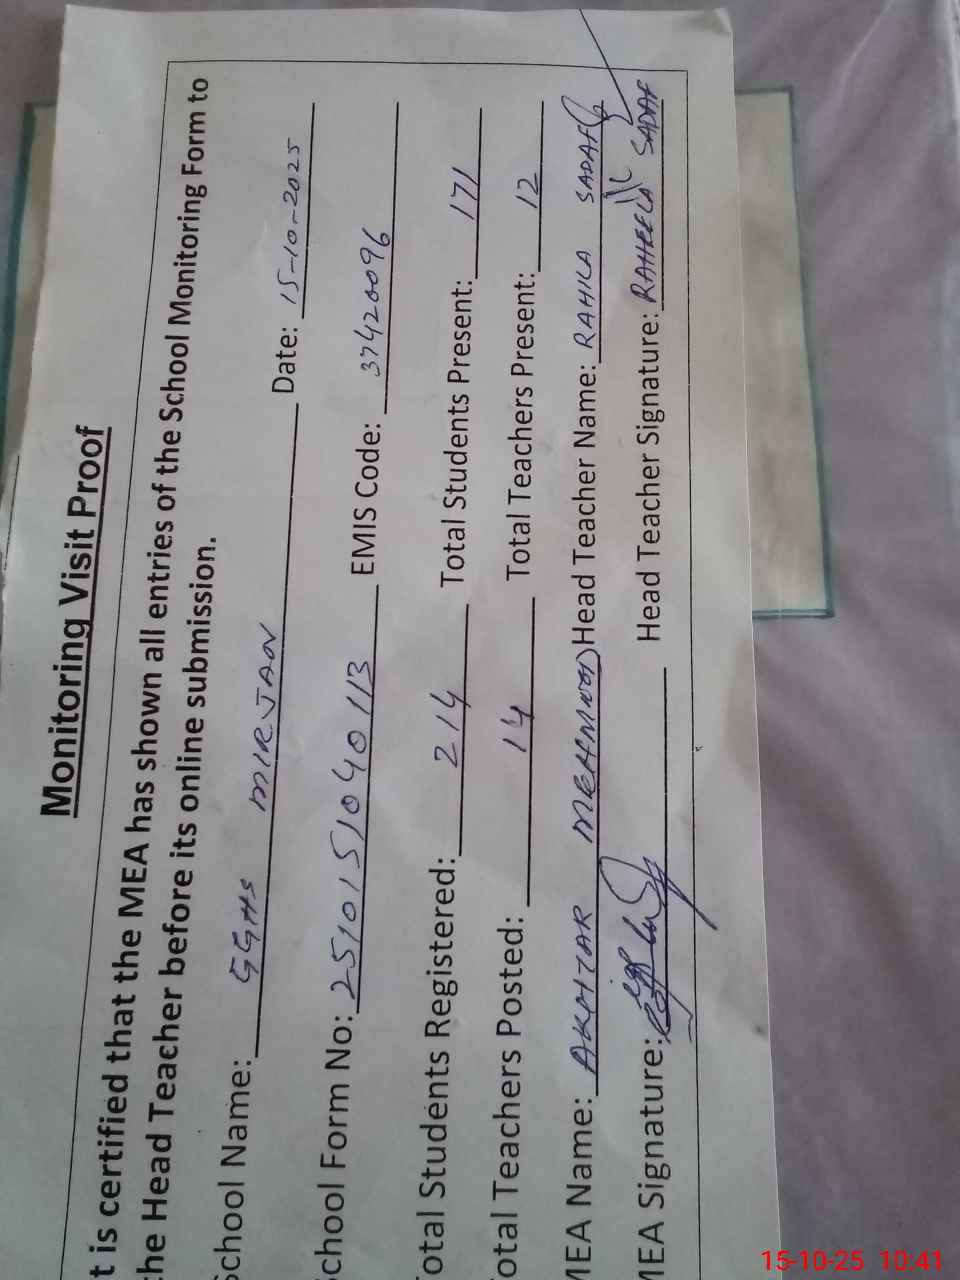 Monitoring Visit Proof
t is certified that the MEA has shown all entries of the School Monitoring Form to
the Head Teacher before its online submission.
School Name: GGHS MIRJAN Date: 15-10-2025
School Form No: 2510151040113 EMIS Code: 37420096
Total Students Registered: 214 Total Students Present: 171
Total Teachers Posted: 14 Total Teachers Present: 12
MEA Name: AKHTAR MEHMOOD Head Teacher Name: RAHILA SADAF
MEA Signature: Head Teacher Signature: RAHEELA SADAF
15-10-25 10:41